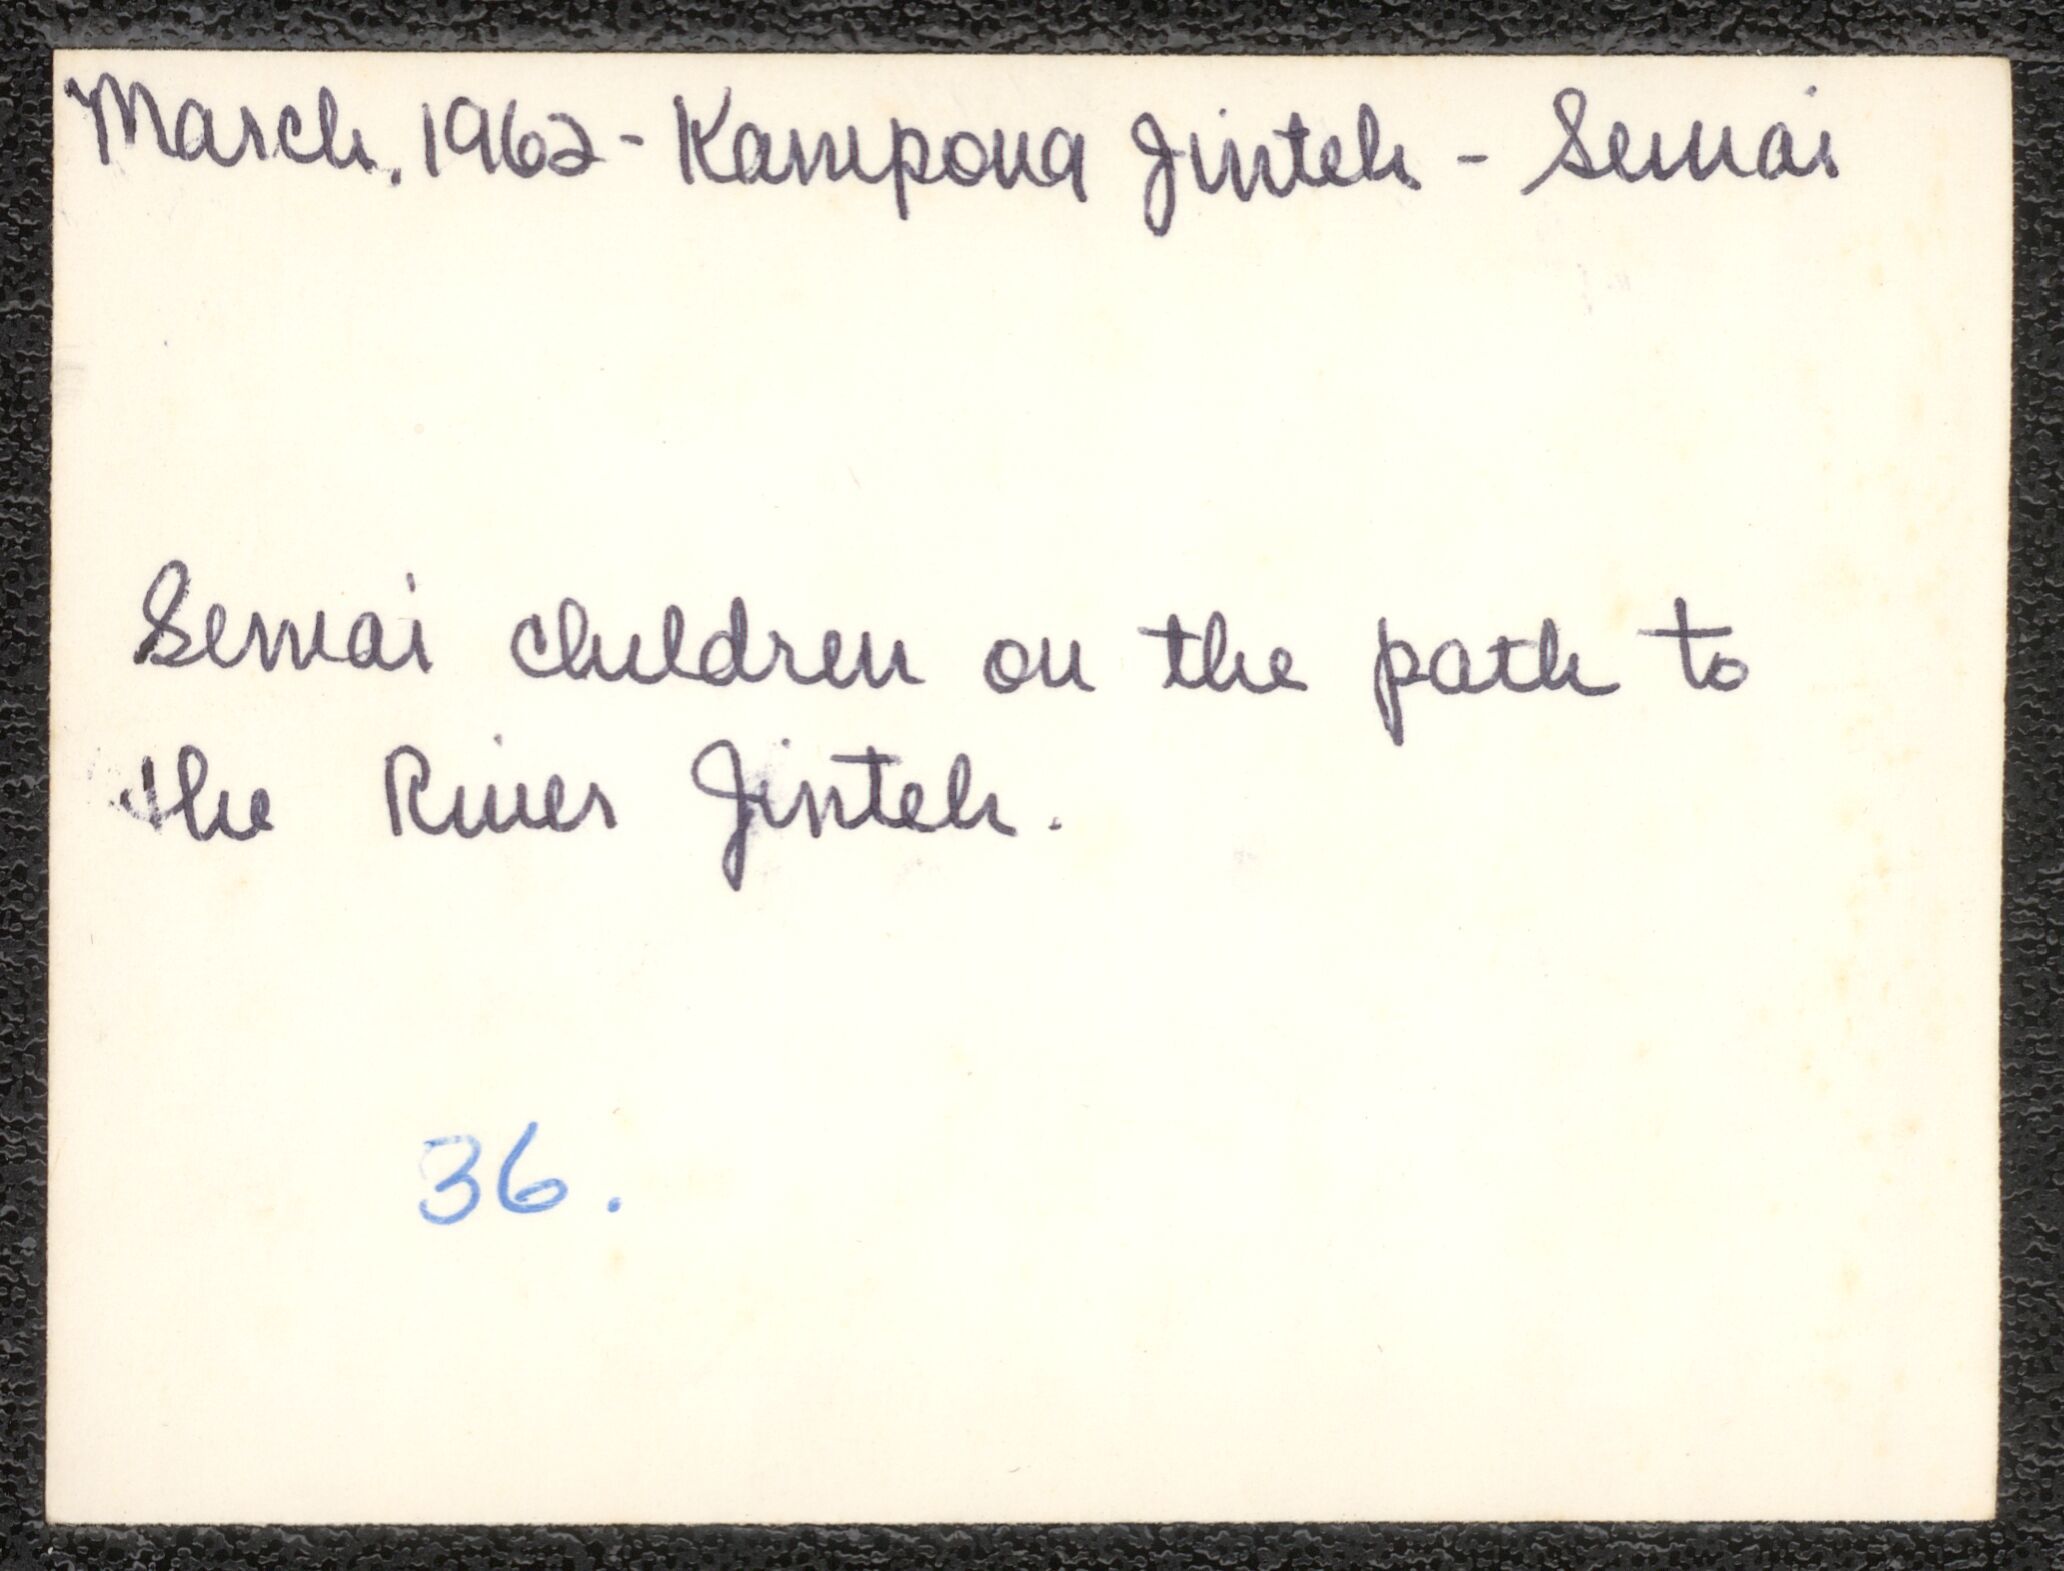 March, 1962 - Kampong Jinteh - Semai
Semai children on the path to
the River Jinteh.
36.